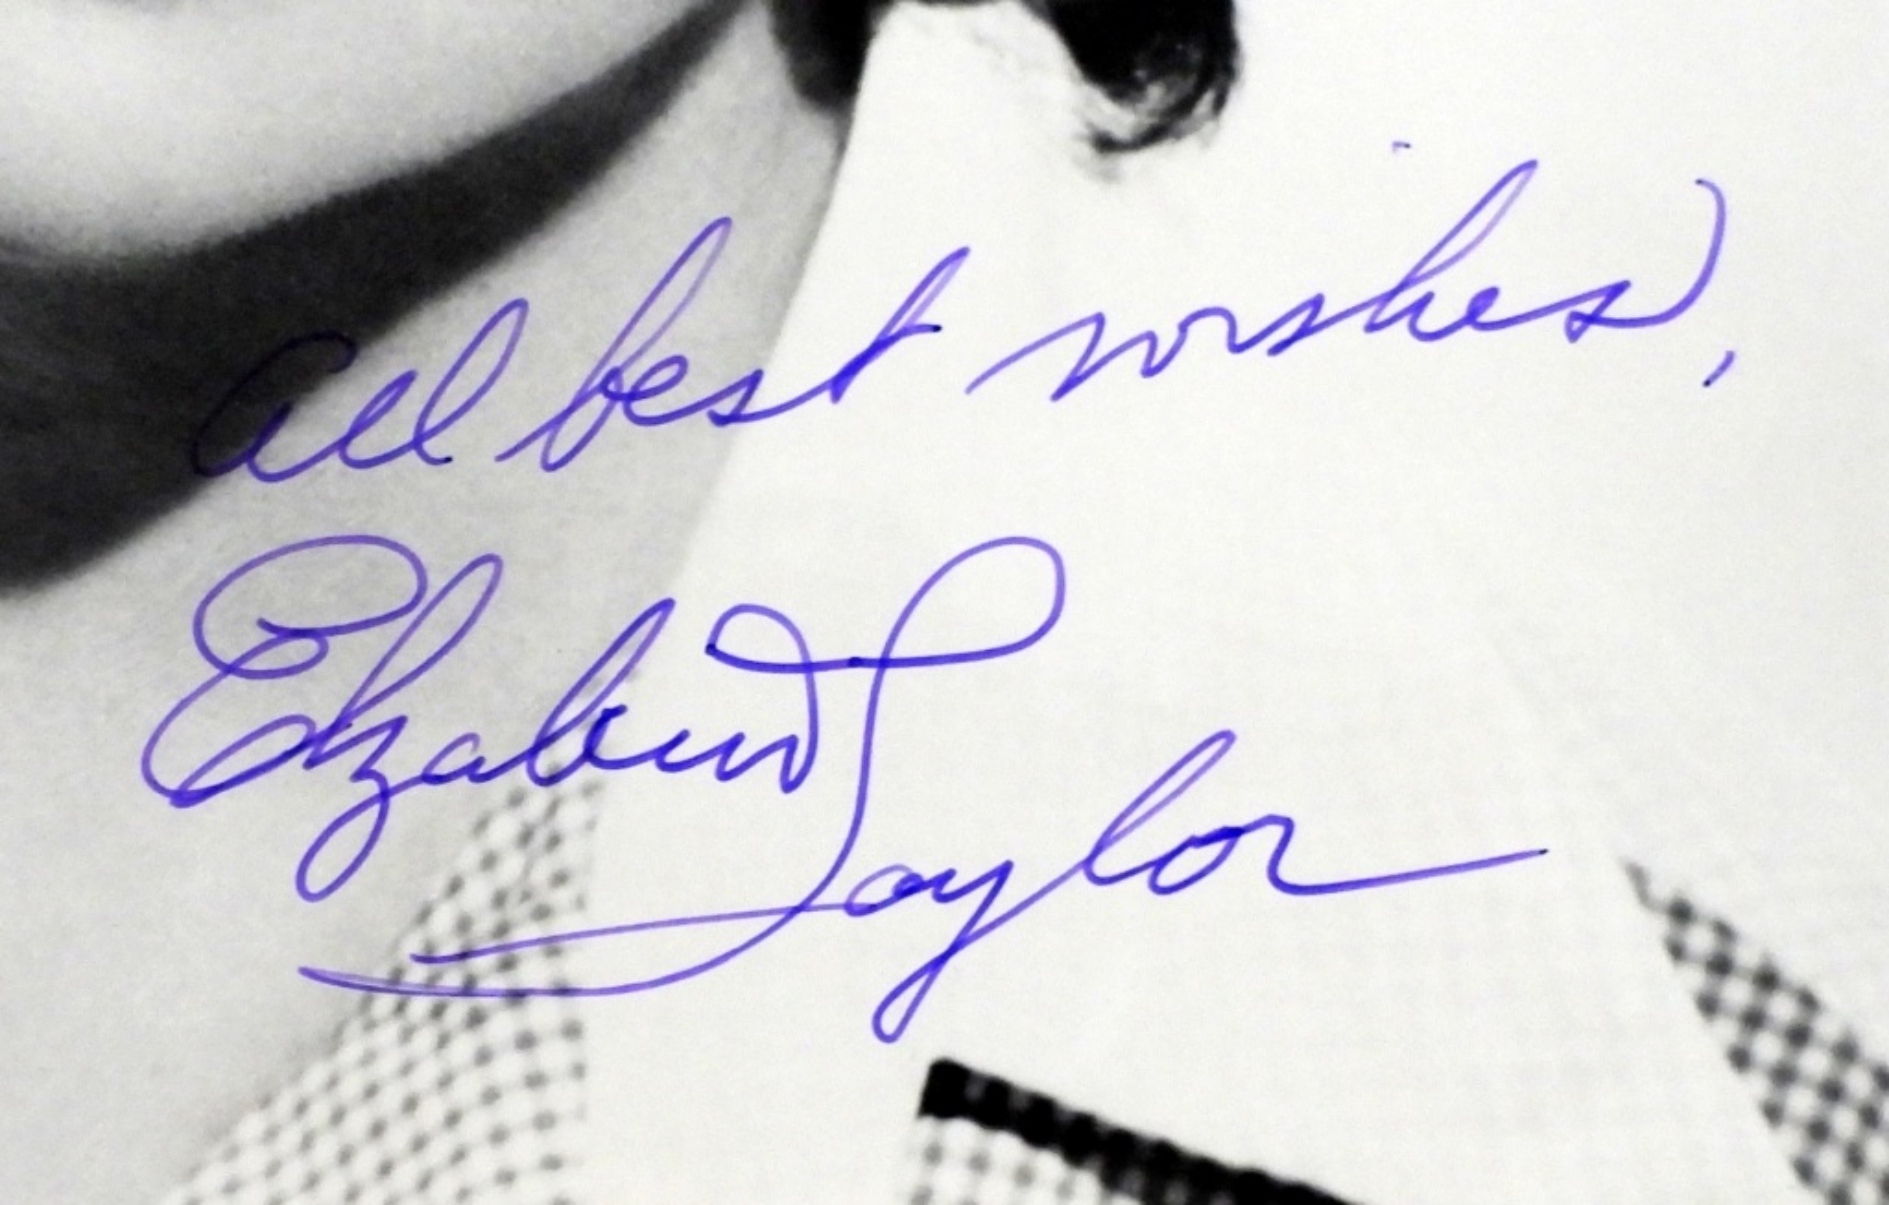 all best wishes,
Elizabeth
Taylor